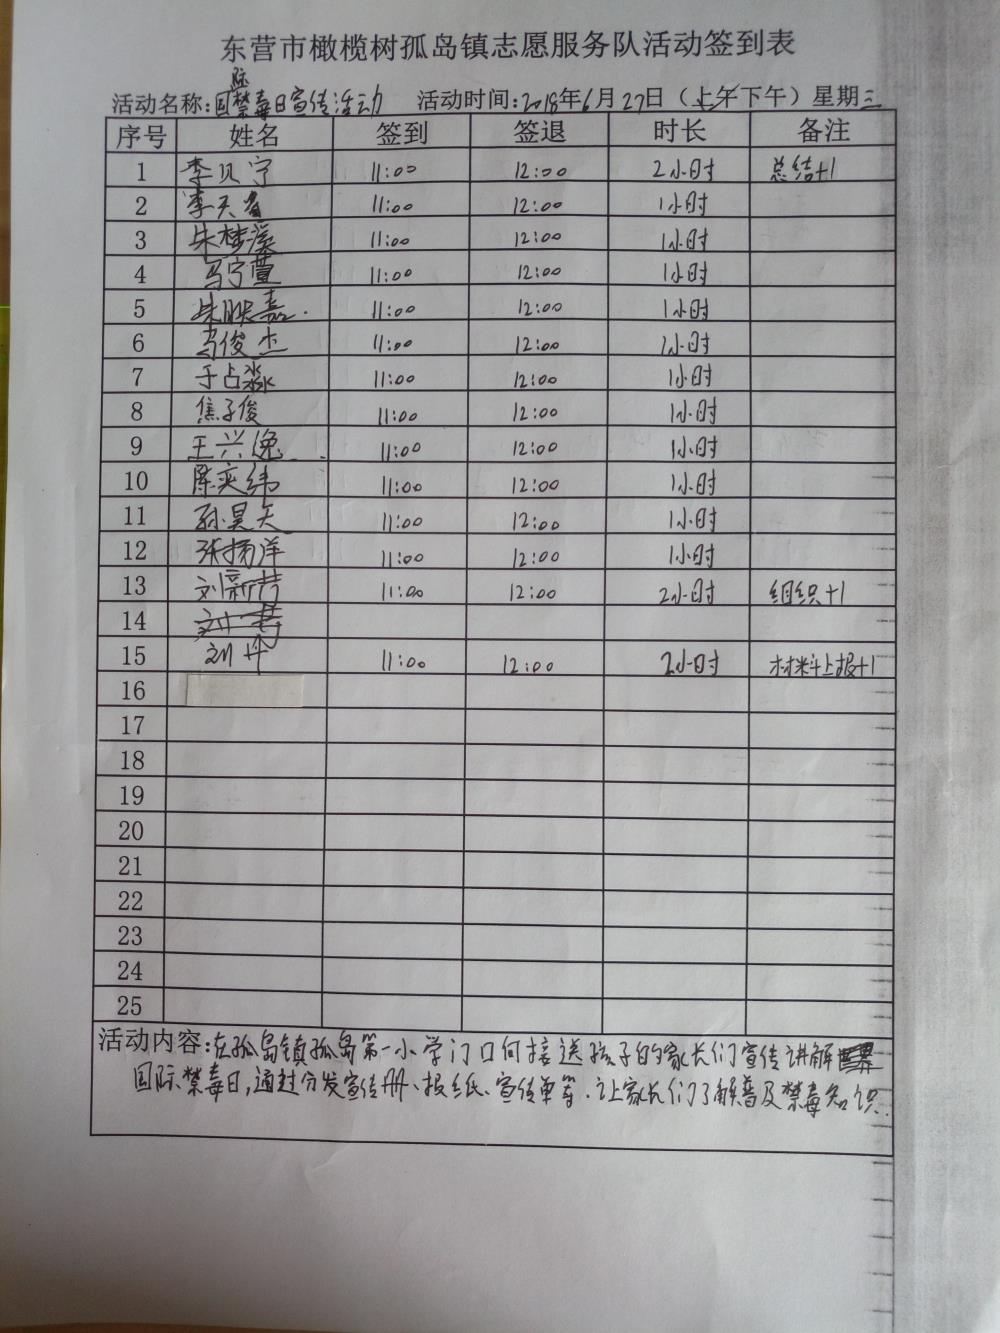 东营市橄榄树孤岛镇志愿服务队活动签到表
活动名称:国际禁毒日宣传活动 活动时间:2018年6月27日(上午下午)星期三
序号 姓名 签到 签退 时长 备注
1 李贝宁 11:00 12:00 2小时 总结+1
2 李天 11:00 12:00 1小时
3 朱梦溪 11:00 12:00 1小时
4 马宁萱 11:00 12:00 1小时
5 朱 嘉 11:00 12:00 1小时
6 马俊杰 11:00 12:00 1小时
7 于占淼 11:00 12:00 1小时
8 焦子俊 11:00 12:00 1小时
9 王兴逸 11:00 12:00 1小时
10 陈奕纬 11:00 12:00 1小时
11 孙昊天 11:00 12:00 1小时
12 张扬洋 11:00 12:00 1小时
13 刘新 11:00 12:00 2小时 组织+1
14
15 刘 11:00 12:00 2小时 材料上报+1
16
17
18
19
20
21
22
23
24
25
活动内容:在孤岛镇孤岛第一小学门口向接送孩子的家长们宣传讲解
国际禁毒日,通过分发宣传册、报纸、宣传单等.让家长们了解普及禁毒知识.